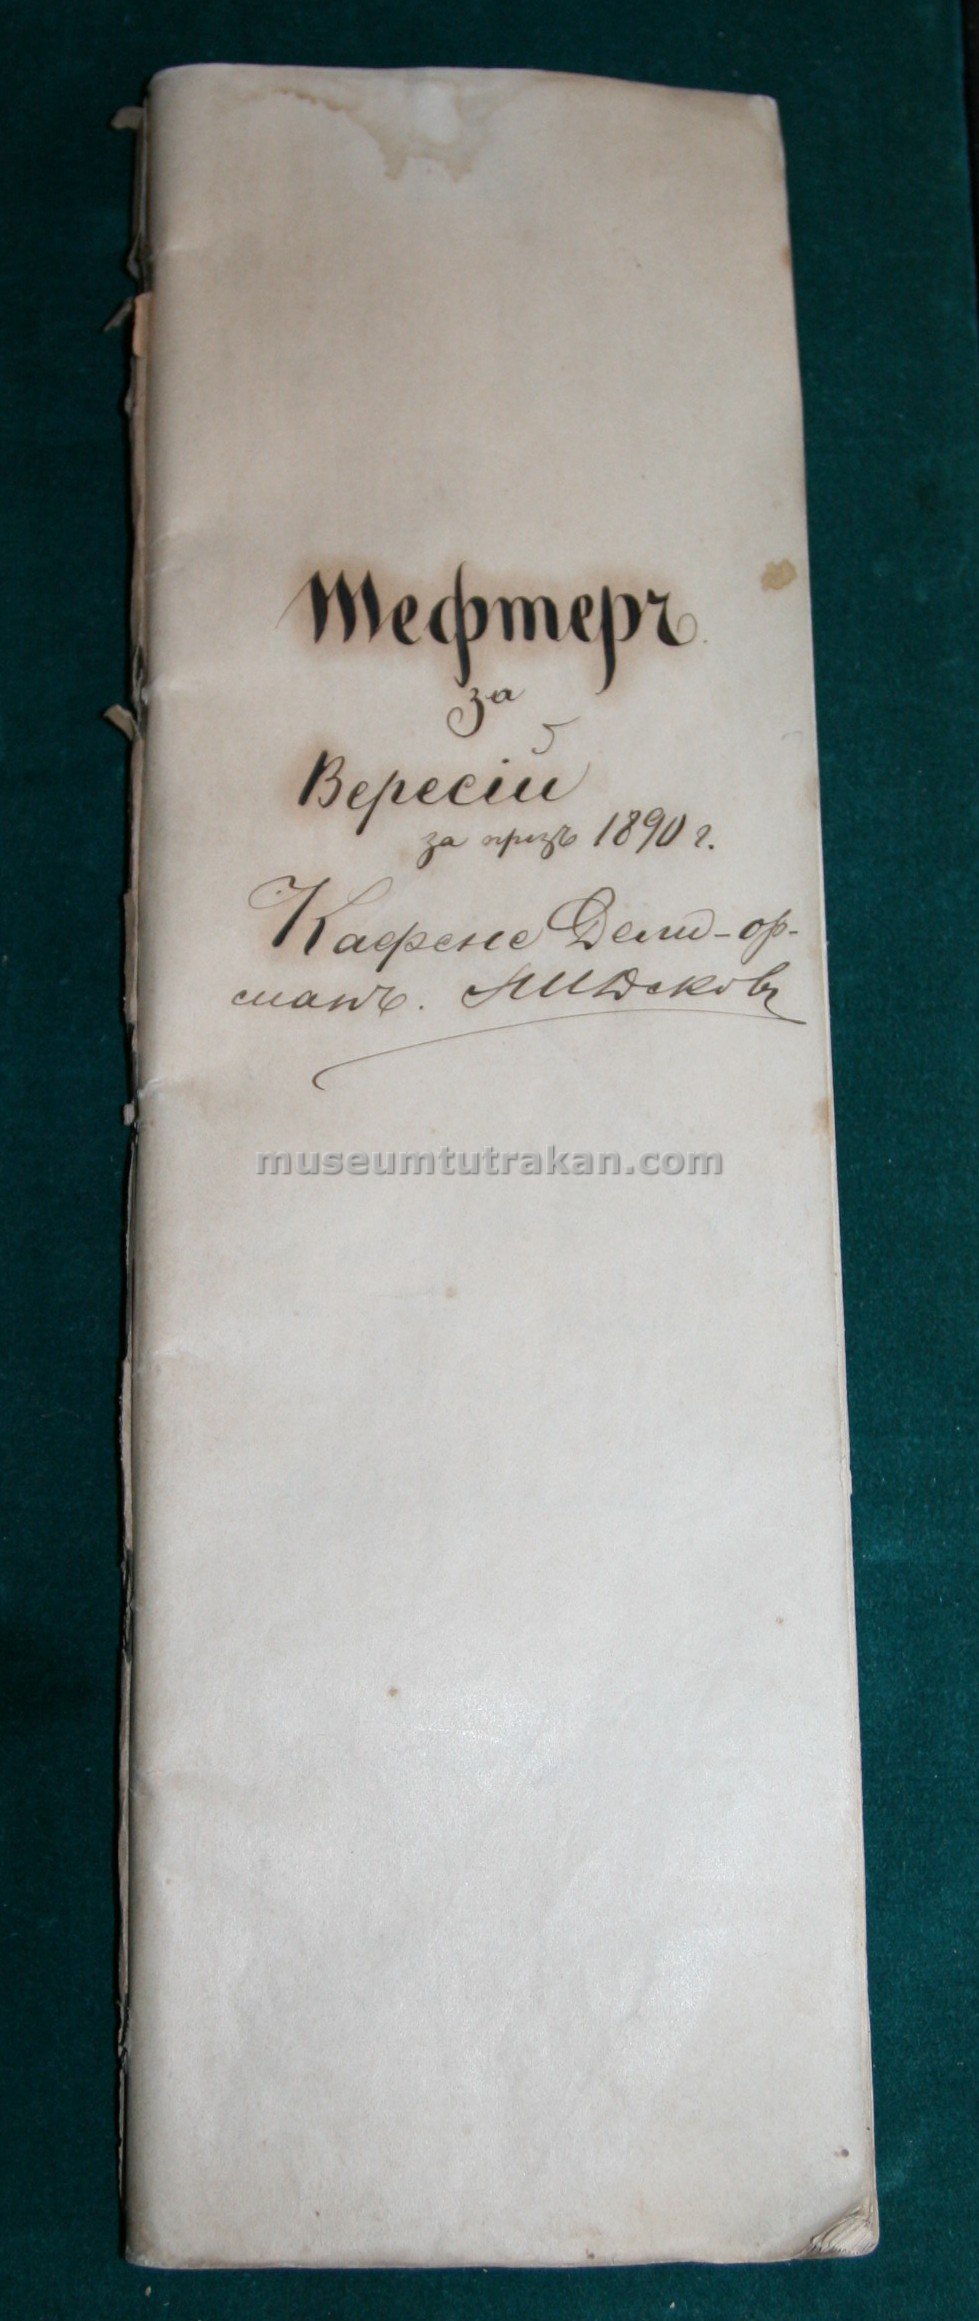 Тефтеръ
за
Вересій
за презъ 1890 г.
Кафене Дели-ор-
манъ.
museumtutrakan.com